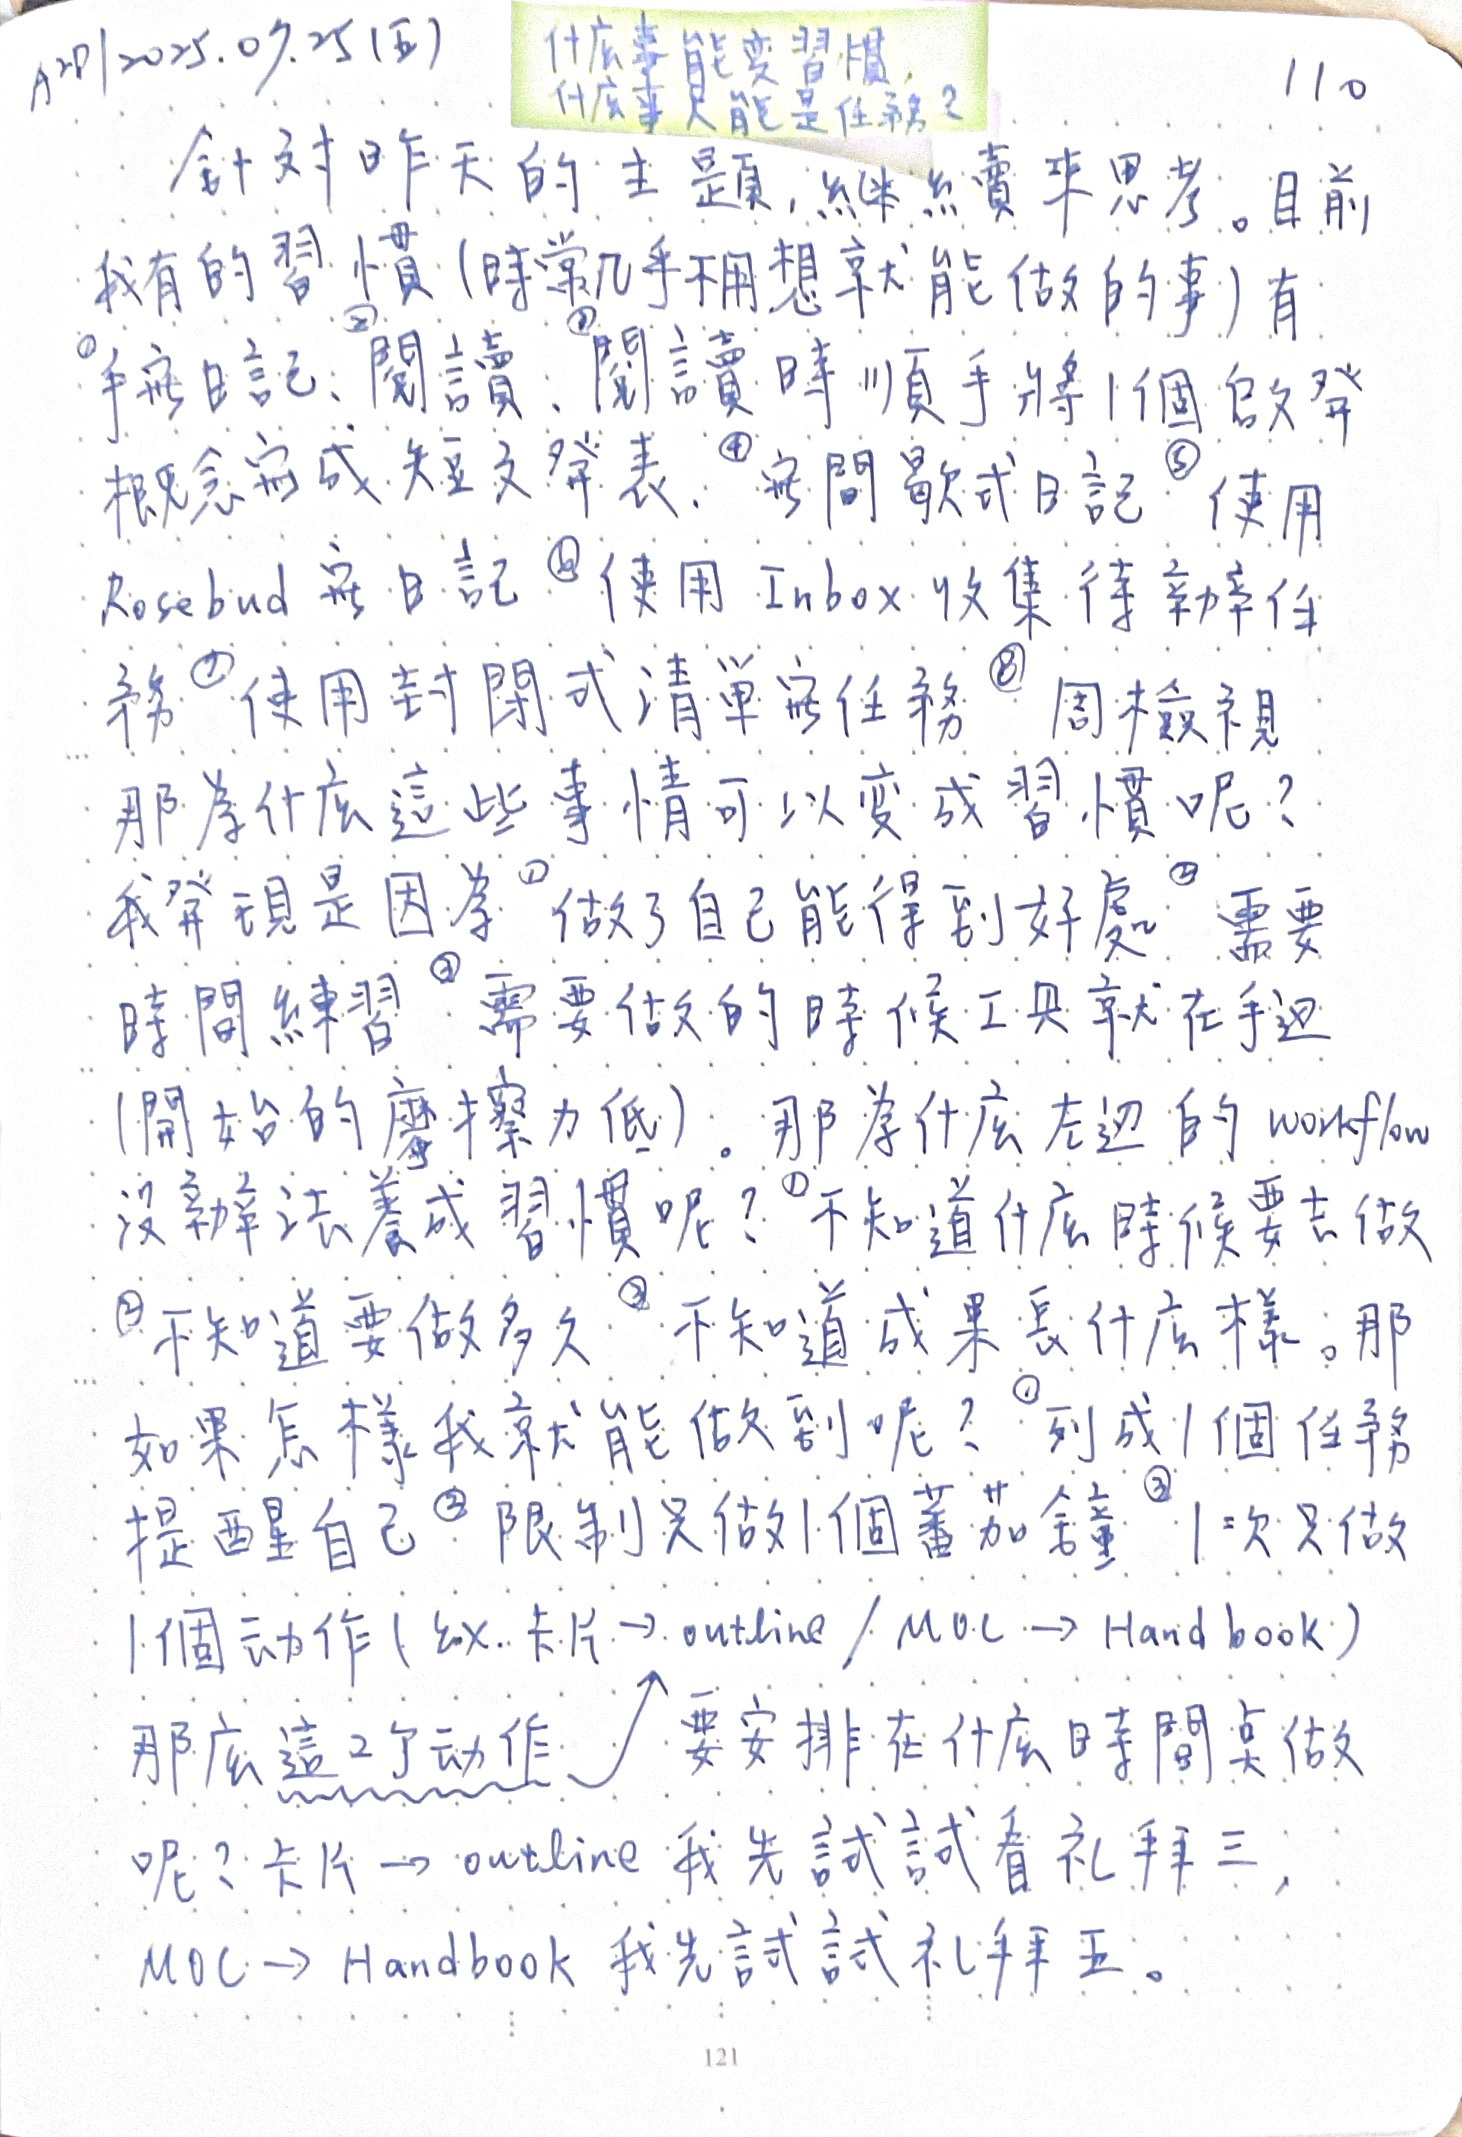 A2P1 2025.07.25(五)
什么事能变習慣,
什么事只能是任務?
110
針对昨天的主題,継續來思考。目前
我有的習慣(時常几乎不用想就能做的事)有
①手寫日記、②閱讀、③閱讀時順手將1個啟發
概念寫成短文發表、④寫間歇式日記⑤使用
Rosebud寫日記⑥使用Inbox收集待辦任
務⑦使用封閉式清單寫任務⑧周檢視
那為什么這些事情可以变成習慣呢?
我發現是因為①做了自己能得到好處②需要
時間練習③需要做的時候工具就在手边
(開始的摩擦力低)。那為什么左边的workflow
沒辦法養成習慣呢?①不知道什么時候要去做
②不知道要做多久③不知道成果長什么樣。那
如果怎樣我就能做到呢?①列成1個任務
提醒自己②限制只做1個蕃茄鐘③1次只做
1個动作(ex.卡片→outline/MOC→Handbook)
那么這2个动作 要安排在什么時間桌做
呢?卡片→outline我先試試看礼拜三,
MOC→Handbook我先試試礼拜五。
121